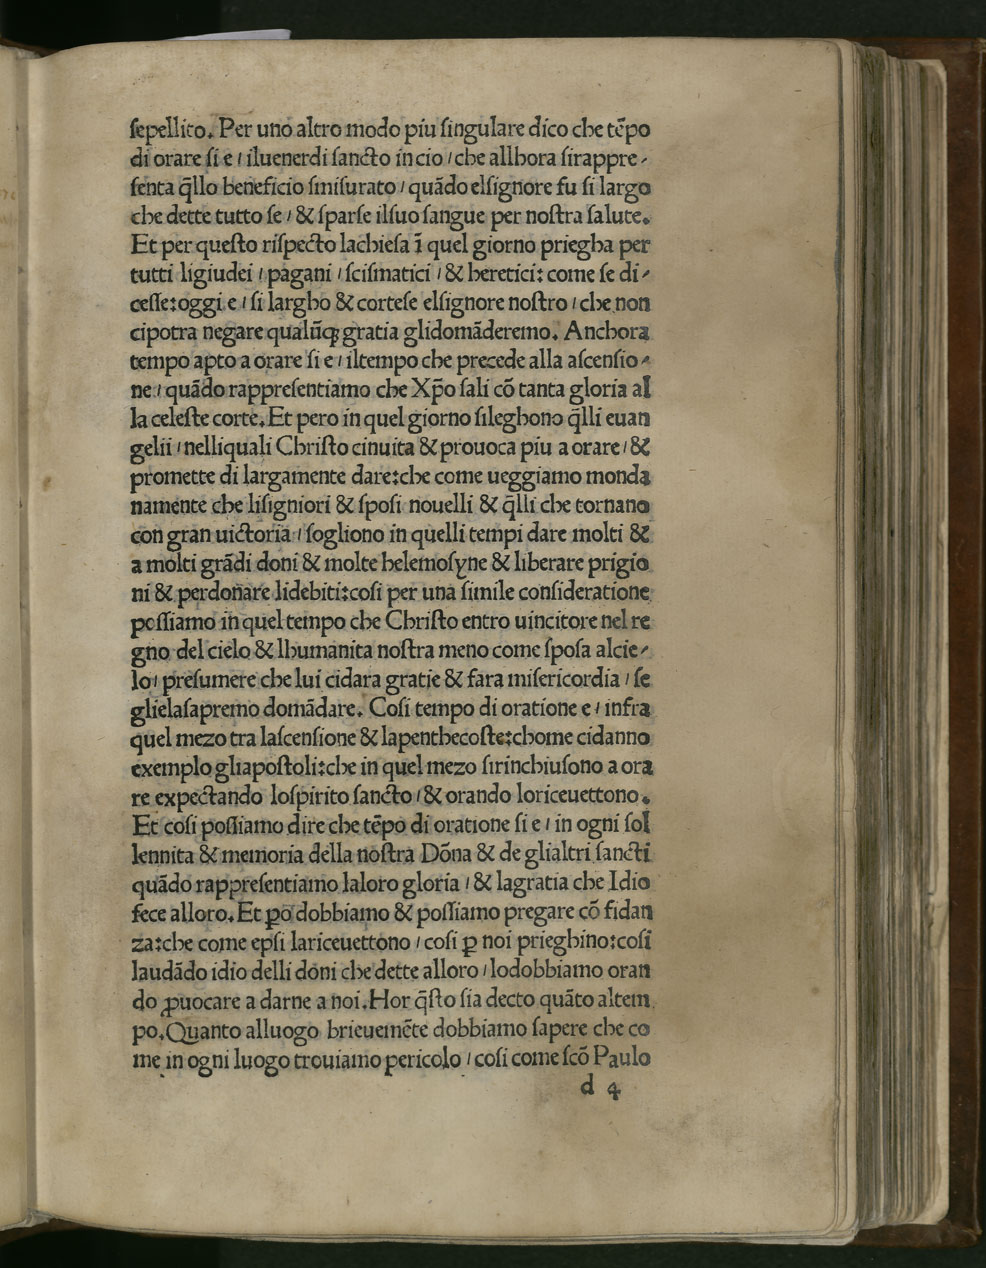 ſepellito. Per uno altro modo piu ſingulare dico che tẽpo
di orare ſi e / iluenerdi ſancto in cio / che allhora ſirappre-
ſenta q̃llo beneficio ſmiſurato / quãdo elſignore fu ſi largo
che dette tutto ſe / & ſparſe ilſuo ſangue per noſtra ſalute.
Et per queſto riſpecto lachieſa ĩ quel giorno priegha per
tutti ligiudei / pagani / ſciſmatici / & heretici: come ſe di-
ceſſe: oggi e / ſi largho & corteſe elſignore noſtro / che non
cipotra negare qualũq; gratia glidomãderemo. Anchora
tempo apto a orare ſi e / iltempo che precede alla aſcenſio-
ne / quãdo rappreſentiamo che Xp̃o ſali cõ tanta gloria al
la celeſte corte. Et pero in quel giorno ſileghono q̃lli euan
gelii / nelliquali Chriſto cinuita & prouoca piu a orare / &
promette di largamente dare: che come ueggiamo monda
namente che liſigniori & ſpoſi nouelli & q̃lli che tornano
con gran uictoria / ſogliono in quelli tempi dare molti &
a molti grãdi doni & molte helemoſyne & liberare prigio
ni & perdonare lidebiti: coſi per una ſimile conſideratione
poſſiamo in quel tempo che Chriſto entro uincitore nel re
gno del cielo & lhumanita noſtra meno come ſpoſa alcie-
lo / preſumere che lui cidara gratie & fara miſericordia / ſe
glielaſapremo domãdare. Coſi tempo di oratione e / infra
quel mezo tra laſcenſione & lapenthecoſte: chome cidanno
exemplo gliapoſtoli: che in quel mezo ſirinchiuſono a ora
re expectando loſpirito ſancto / & orando loriceuettono.
Et coſi poſſiamo dire che tẽpo di oratione ſi e / in ogni ſol
lennita & memoria della noſtra Dõna & de glialtri ſancti
quãdo rappreſentiamo laloro gloria / & lagratia che Idio
fece alloro. Et ꝑo dobbiamo & poſſiamo pregare cõ fidan
za: che come epſi lariceuettono / coſi ꝑ noi prieghino: coſi
laudãdo idio delli doni che dette alloro / lodobbiamo oran
do ꝓuocare a darne a noi. Hor q̃ſto ſia decto quãto altem
po. Quanto alluogo brieuemẽte dobbiamo ſapere che co
me in ogni luogo trouiamo pericolo / coſi come ſcõ Paulo
d 4